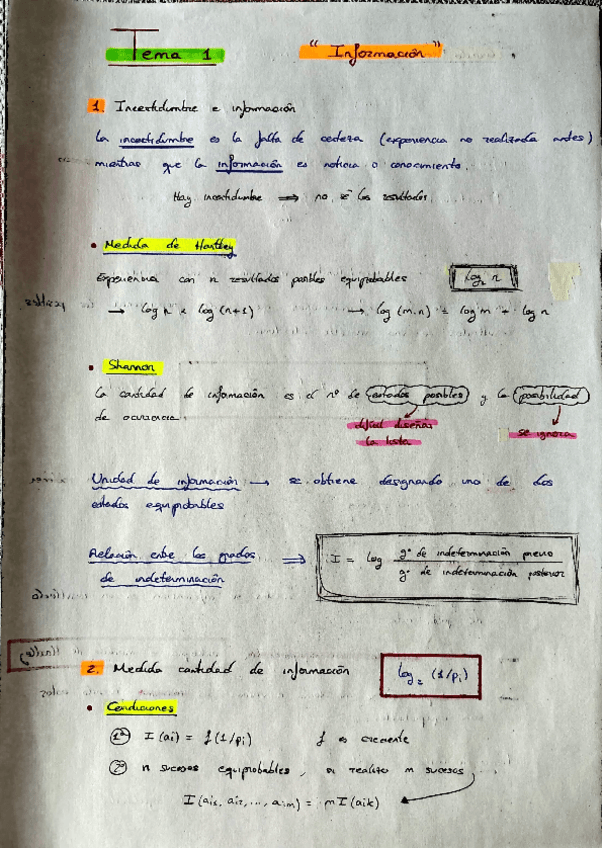 Tema 1 "Información"
1. Incertidumbre e información
La incertidumbre es la falta de certeza (experiencia no realizada antes)
mientras que la información es noticia o conocimiento.
Hay incertidumbre ⟹ no sé los resultados
• Medida de Hartley
Experiencia con n resultados posibles equiprobables log₂ n
→ log n < log (n+1) → log (m·n) = log m + log n
• Shannon
La cantidad de información es el nº de estados posibles y la posibilidad
de ocurrencia.
difícil diseñar se ignora
la lista
Unidad de información → se obtiene designando uno de dos
estados equiprobables
Relación entre los grados ⟹ I = log gº de indeterminación previo
de indeterminación gº de indeterminación posterior
2. Medida cantidad de información log₂ (1/pi)
• Condiciones
1ª I (ai) = f (1/pi) f es creciente
2ª n sucesos equiprobables, si realizo m sucesos
I (ai1, ai2, ..., aim) = m I (aik)